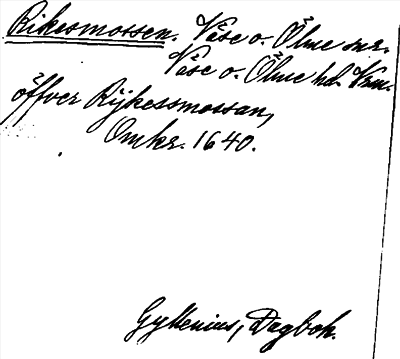 Rikesmossen. Väse o. Ölme snr.
Väse o. Ölme hd. Vrm.
öffver Rijkessmossan,
Omkr. 1640.
Gyllenius, Dagbok.